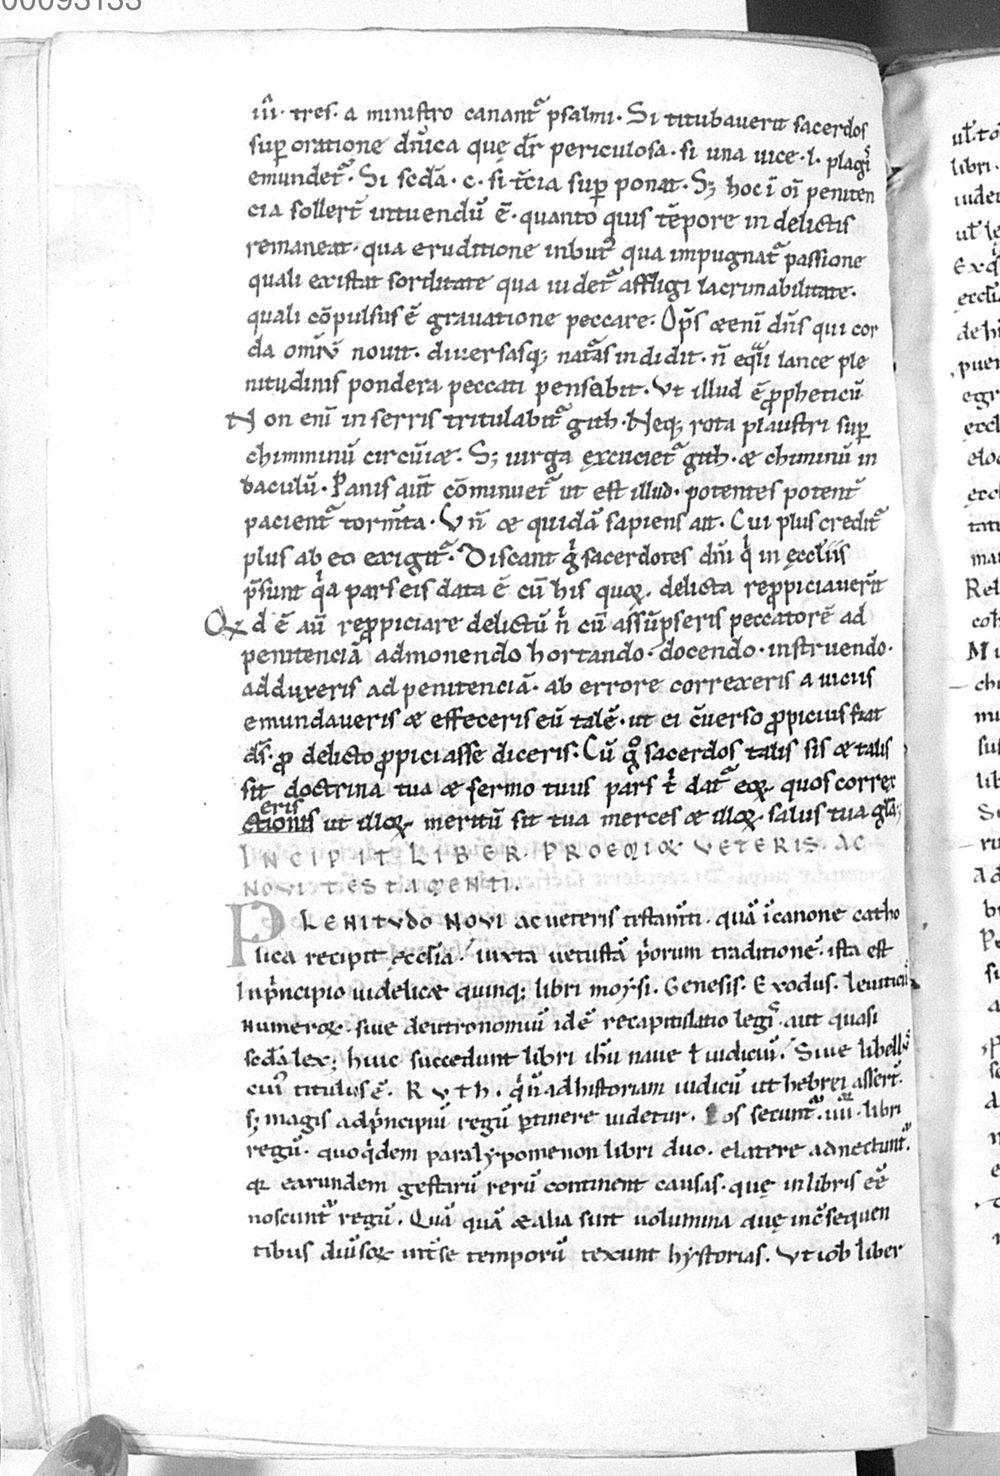 00093133
iii. tres. a ministro canant᷑ psalmi. Si titubauerit sacerdos
sup oratione dn̄ica quę dr̄ periculosa. si una uice .l. plagis
emundet᷑. Si scd̄a .c. si t̄cia sup ponat. S; hoc ī oī peniten
cia sollert̄ intuendū ē. quanto quis tēpore in delictis
remaneat. qua eruditione inbut᷑ qua impugnat᷑ passione
quali existat sorditate qua uidet᷑ affligi lacrimabilitate.
quali cōpulsus ē grauatione peccare. Op̄s &enī dn̄s qui cor
da omīū nouit. diuersasq; nat᷑as indidit. n̄ eq̄li lance ple
nitudinis pondera peccati pensabit. Vt illud ē ppheticū
Non enī in serris tritulabit᷑ gith. Neq; rota plaustri sup
chimminū circūi&. S; uirga excuciet᷑ gith. & chiminū in
baculū. Panis aūt cōminuet᷑ ut est illud. potentes potent᷑
pacient᷑ torm̄ta. Vn̄ & quidā sapiens ait. Cui plus credit᷑
plus ab eo exigit᷑. Discant g̊ sacerdotes dn̄i q̊ in ęcclīis
p̄sunt q̊a pars eis data ē cū his quoꝝ delicta reppiciauerīt
Qd ē aū reppiciare delictū n̊ cū assūpseris peccatorē ad
penitenciā admonendo hortando. docendo. instruendo.
adduxeris ad penitenciā. ab errore correxeris a uiciis
emundaueris & effeceris eū talē. ut ei c̄uerso ppicius fiat
ds̄. p delicto ppiciasse diceris. Cū g̊ sacerdos talis sis & talis
sit doctrina tua & sermo tuus pars t̊ dat᷑ eoꝝ quos correx
eris
ctionis ut illoꝝ meritū sit tua merces & illoꝝ salus tua gl̄a;
INCIPIT LIBER PROEMIOꝝ VETERIS. AC
NOVI TESTAMENTI.
PLENITVDO NOVI ac ueteris testam̄ti. quā ī canone catho
lica recipit ęccl̄sia. iuxta uetustā p̊orum traditionē. ista est
In p̊ncipio uidelic& quinq; libri moysi. Genesis. Exodus. leuitic᷒
Numeroꝝ. siue deutronomiū idē recapitulatio legis. aut quasi
scd̄a lex; huic succedunt libri ih̄u naue t̄ iudiciū. Siue libell᷒
cui᷒ titulus ē. RVTh. q̊ n̄ ad historiam iudicū ut hebrei assert̄.
s; magis ad p̊ncipiū regū ptinere uidetur. hos secunt᷑. iiii. libri
regū. quoq̊dem paralypomenon libri duo. elatere adnectunt᷑.
qꝝ earundem gestarū rerū continent causas. quę in libris eē
noscunt᷑ regū. Quā quā & alia sunt uolumina quę in c̄sequen
tibus diūsoꝝ int̄ se temporū texunt hystorias. Vt iob liber